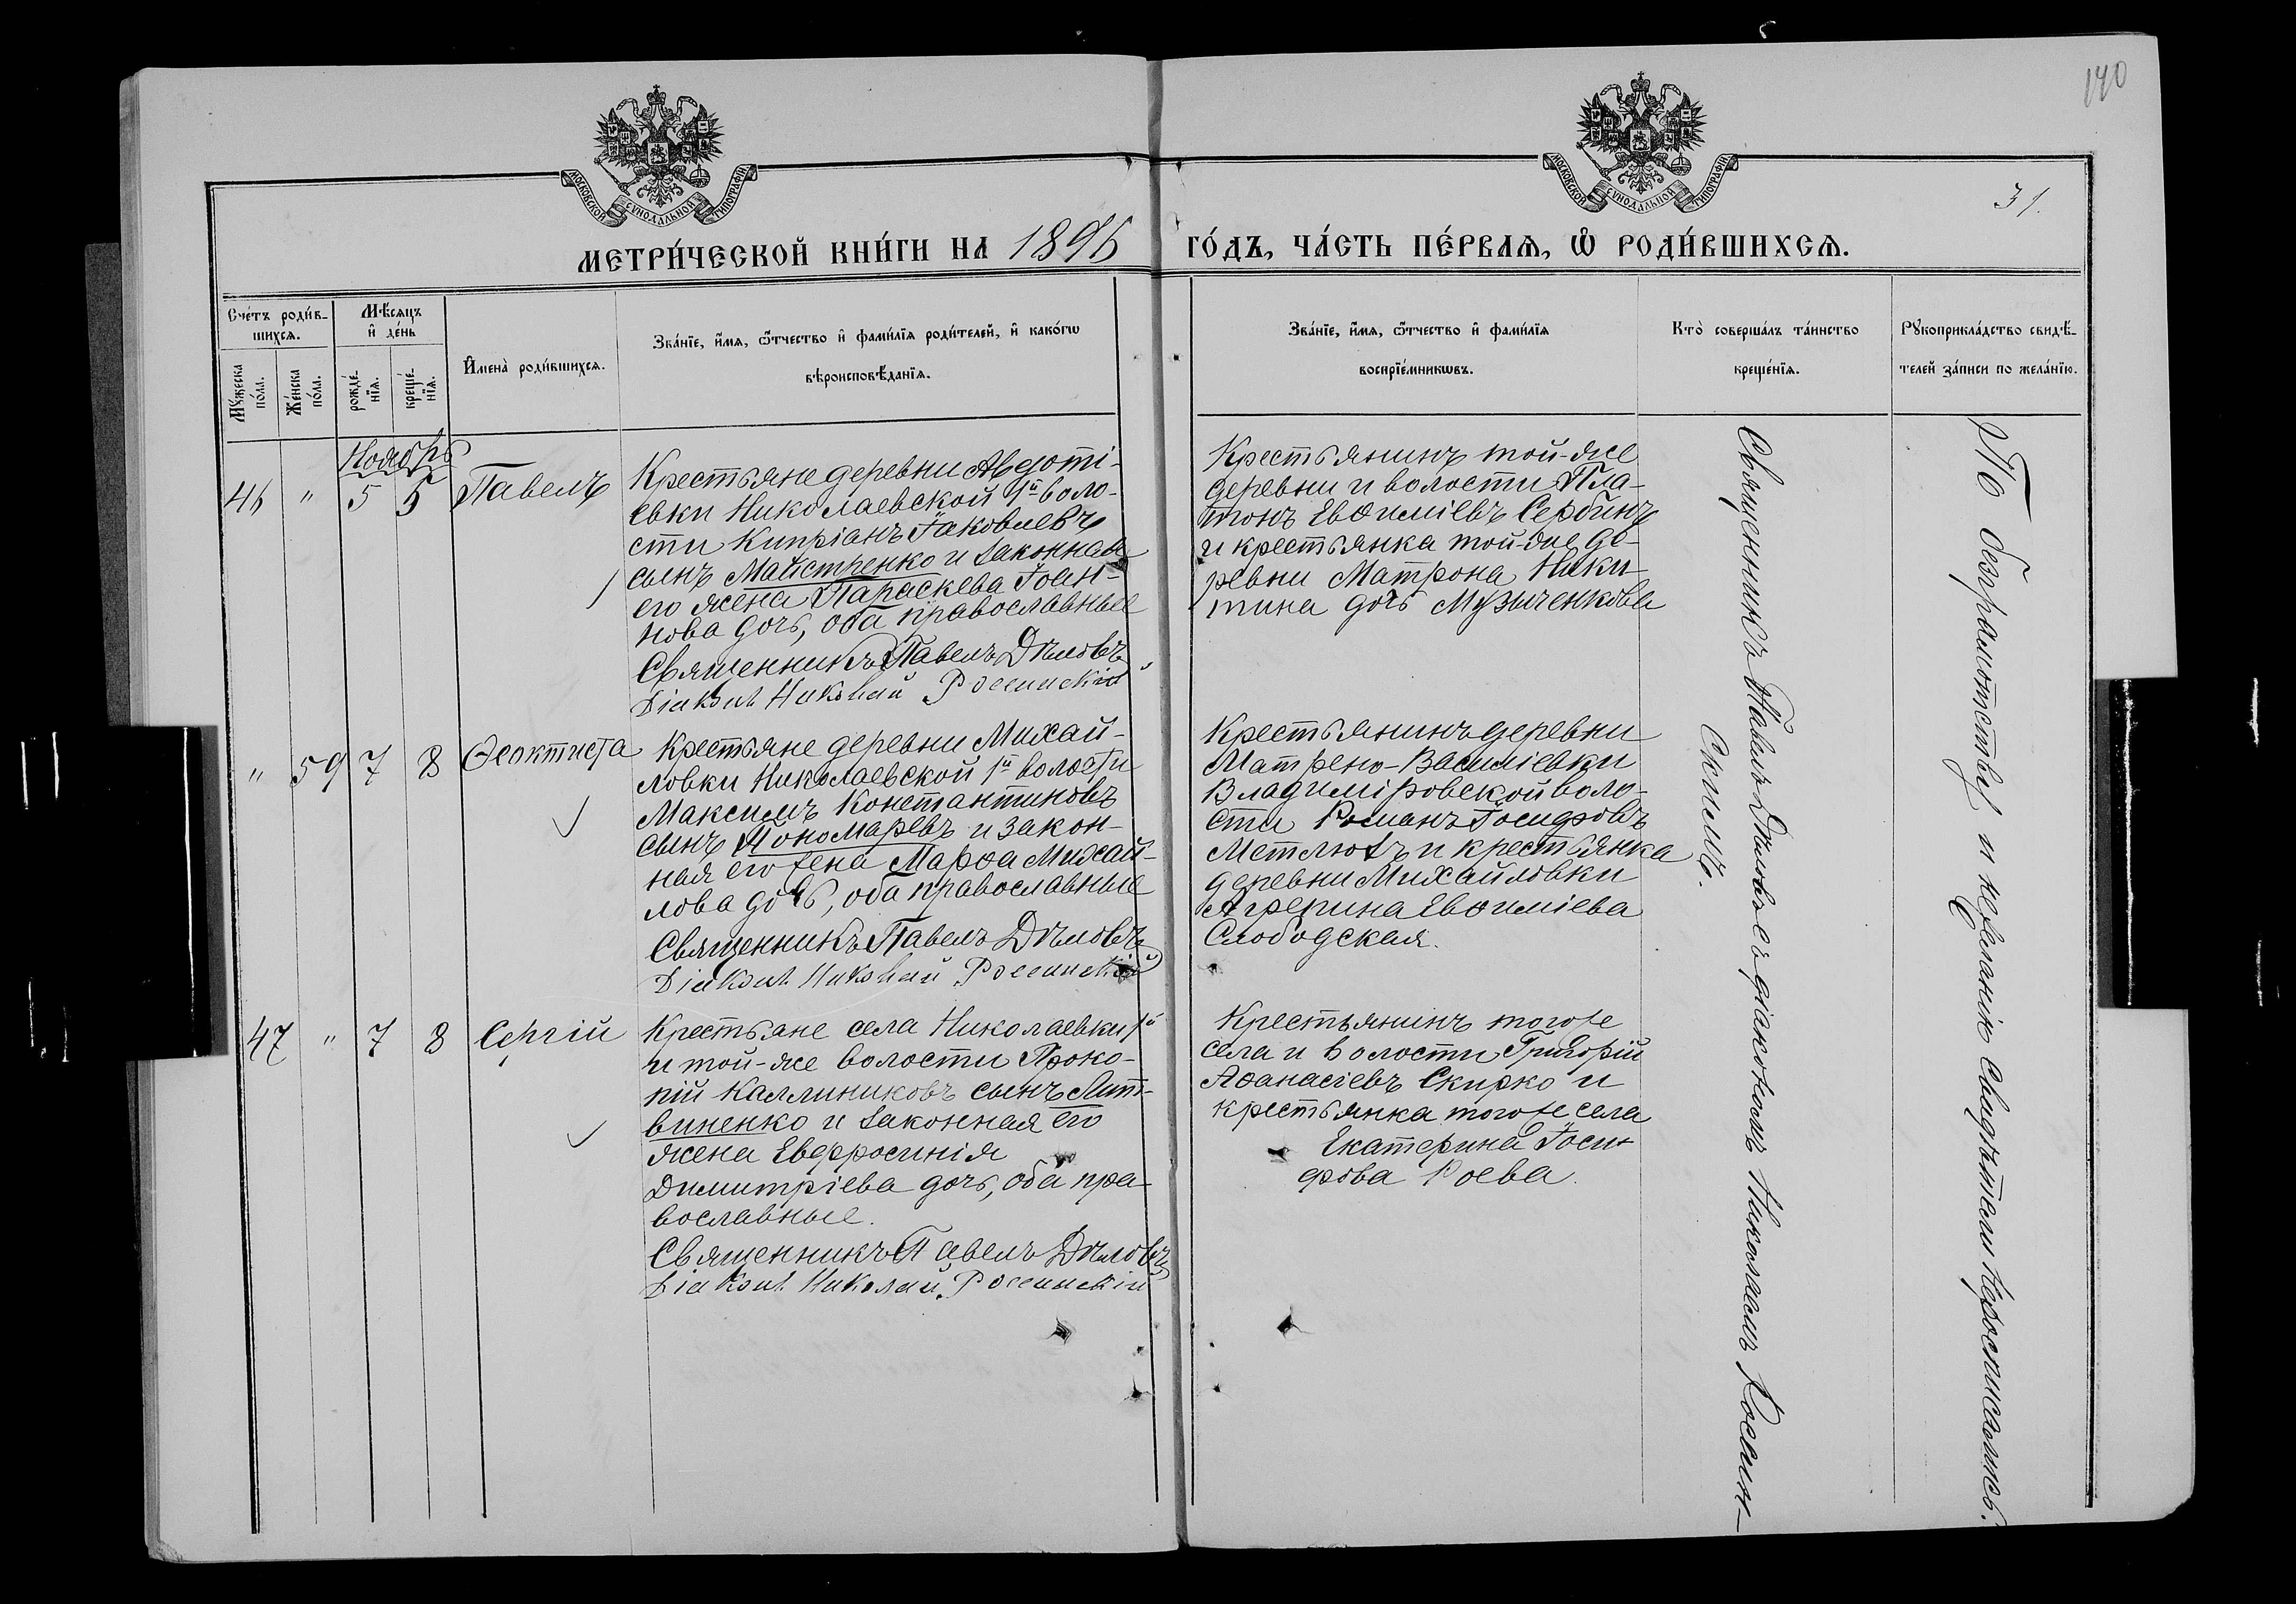 140
31.
МОСКОВСКОЙ СѴНОДАЛЬНОЙ ТИПОГРАФІИ
МОСКОВСКОЙ СѴНОДАЛЬНОЙ ТИПОГРАФІИ
МЕТРИ́ЧЕСКОЙ КНИ́ГИ НА 1896 ГО́ДЪ, ЧА́СТЬ ПЕ́РВАѦ, Ѡ҆ РОДИ́ВШИХСѦ.
Сче́тъ роди́в-
шихсѧ.
Мꙋ́жеска
по́ла.
Же́нска
по́ла.
Мѣ́сѧцъ
и҆ де́нь
рожде́-
нїѧ.
креще́-
нїѧ.
И҆мена̀ роди́вшихсѧ.
Зва́нїе, и҆́мѧ, ѻ҆́тчество и҆ фами́лїѧ роди́телей, и҆ како́гѡ
вѣроисповѣ́данїѧ.
Зва́нїе, и҆́мѧ, ѻ҆́тчество и҆ фами́лїѧ
воспрїе́мникѡвъ.
Кто̀ соверша́лъ та́инство
креще́нїѧ.
Рꙋкоприкла́дство свидѣ́-
телей за́писи по жела́нїю.
Ноябрь
46 " 5 5 Павелъ
Крестьяне деревни Авдоті-
евки Николаевской 1й воло-
сти Кипріанъ Іаковлевъ
сынъ Майстренко и законная
его жена Параскева Іоан-
нова дочь, оба православные
Священникъ Павелъ Дѣловъ
Діаконъ Николай Россинскій
Крестьянинъ той-же
деревни и волости Пла-
тонъ Евѳиміевъ Сербинъ
и крестьянка той-же де-
ревни Матрона Ники-
тина дочь Музыченкова
" 59 7 8 Ѳеоктиста
Крестьяне деревни Михай-
ловки Николаевской 1й волости
Максимъ Константиновъ
сынъ Пономаревъ и закон-
ная его жена Марѳа Михай-
лова дочь, оба православные
Священникъ Павелъ Дѣловъ
Діаконъ Николай Россинскій
Крестьянинъ деревни
Матрено-Василіевки
Владиміровской воло-
сти Романъ Іосифовъ
Метлютъ и крестьянка
деревни Михайловки
Агрепина Евѳиміева
Слободская.
47 " 7 8 Сергій
Крестьяне села Николаевки 1й
и той-же волости Проко-
пій Каллиниковъ сынъ Лит-
виненко и законная его
жена Евфросинія
Димитріева дочь, оба пра-
вославные.
Священникъ Павелъ Дѣловъ
Діаконъ Николай Россинскій
Крестьянинъ тогоже
села и волости Григорій
Аѳанасіевъ Скирко и
крестьянка тогоже села
Екатерина Іоси-
фова Роева.
Священникъ Павелъ Дѣловъ съ діакономъ Николаемъ Россин-
скимъ.
По безграмотству и нежеланію свидѣтели не росписались.